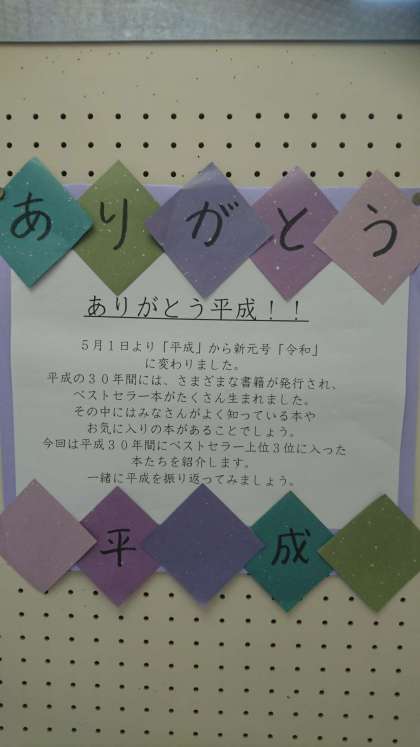 ありがとう
ありがとう平成！！
５月１日より「平成」から新元号「令和」
に変わりました。
平成の３０年間には、さまざまな書籍が発行され、
ベストセラー本がたくさん生まれました。
その中にはみなさんがよく知っている本や
お気に入りの本があることでしょう。
今回は平成３０年間にベストセラー上位３位に入った
本たちを紹介します。
一緒に平成を振り返ってみましょう。
平成